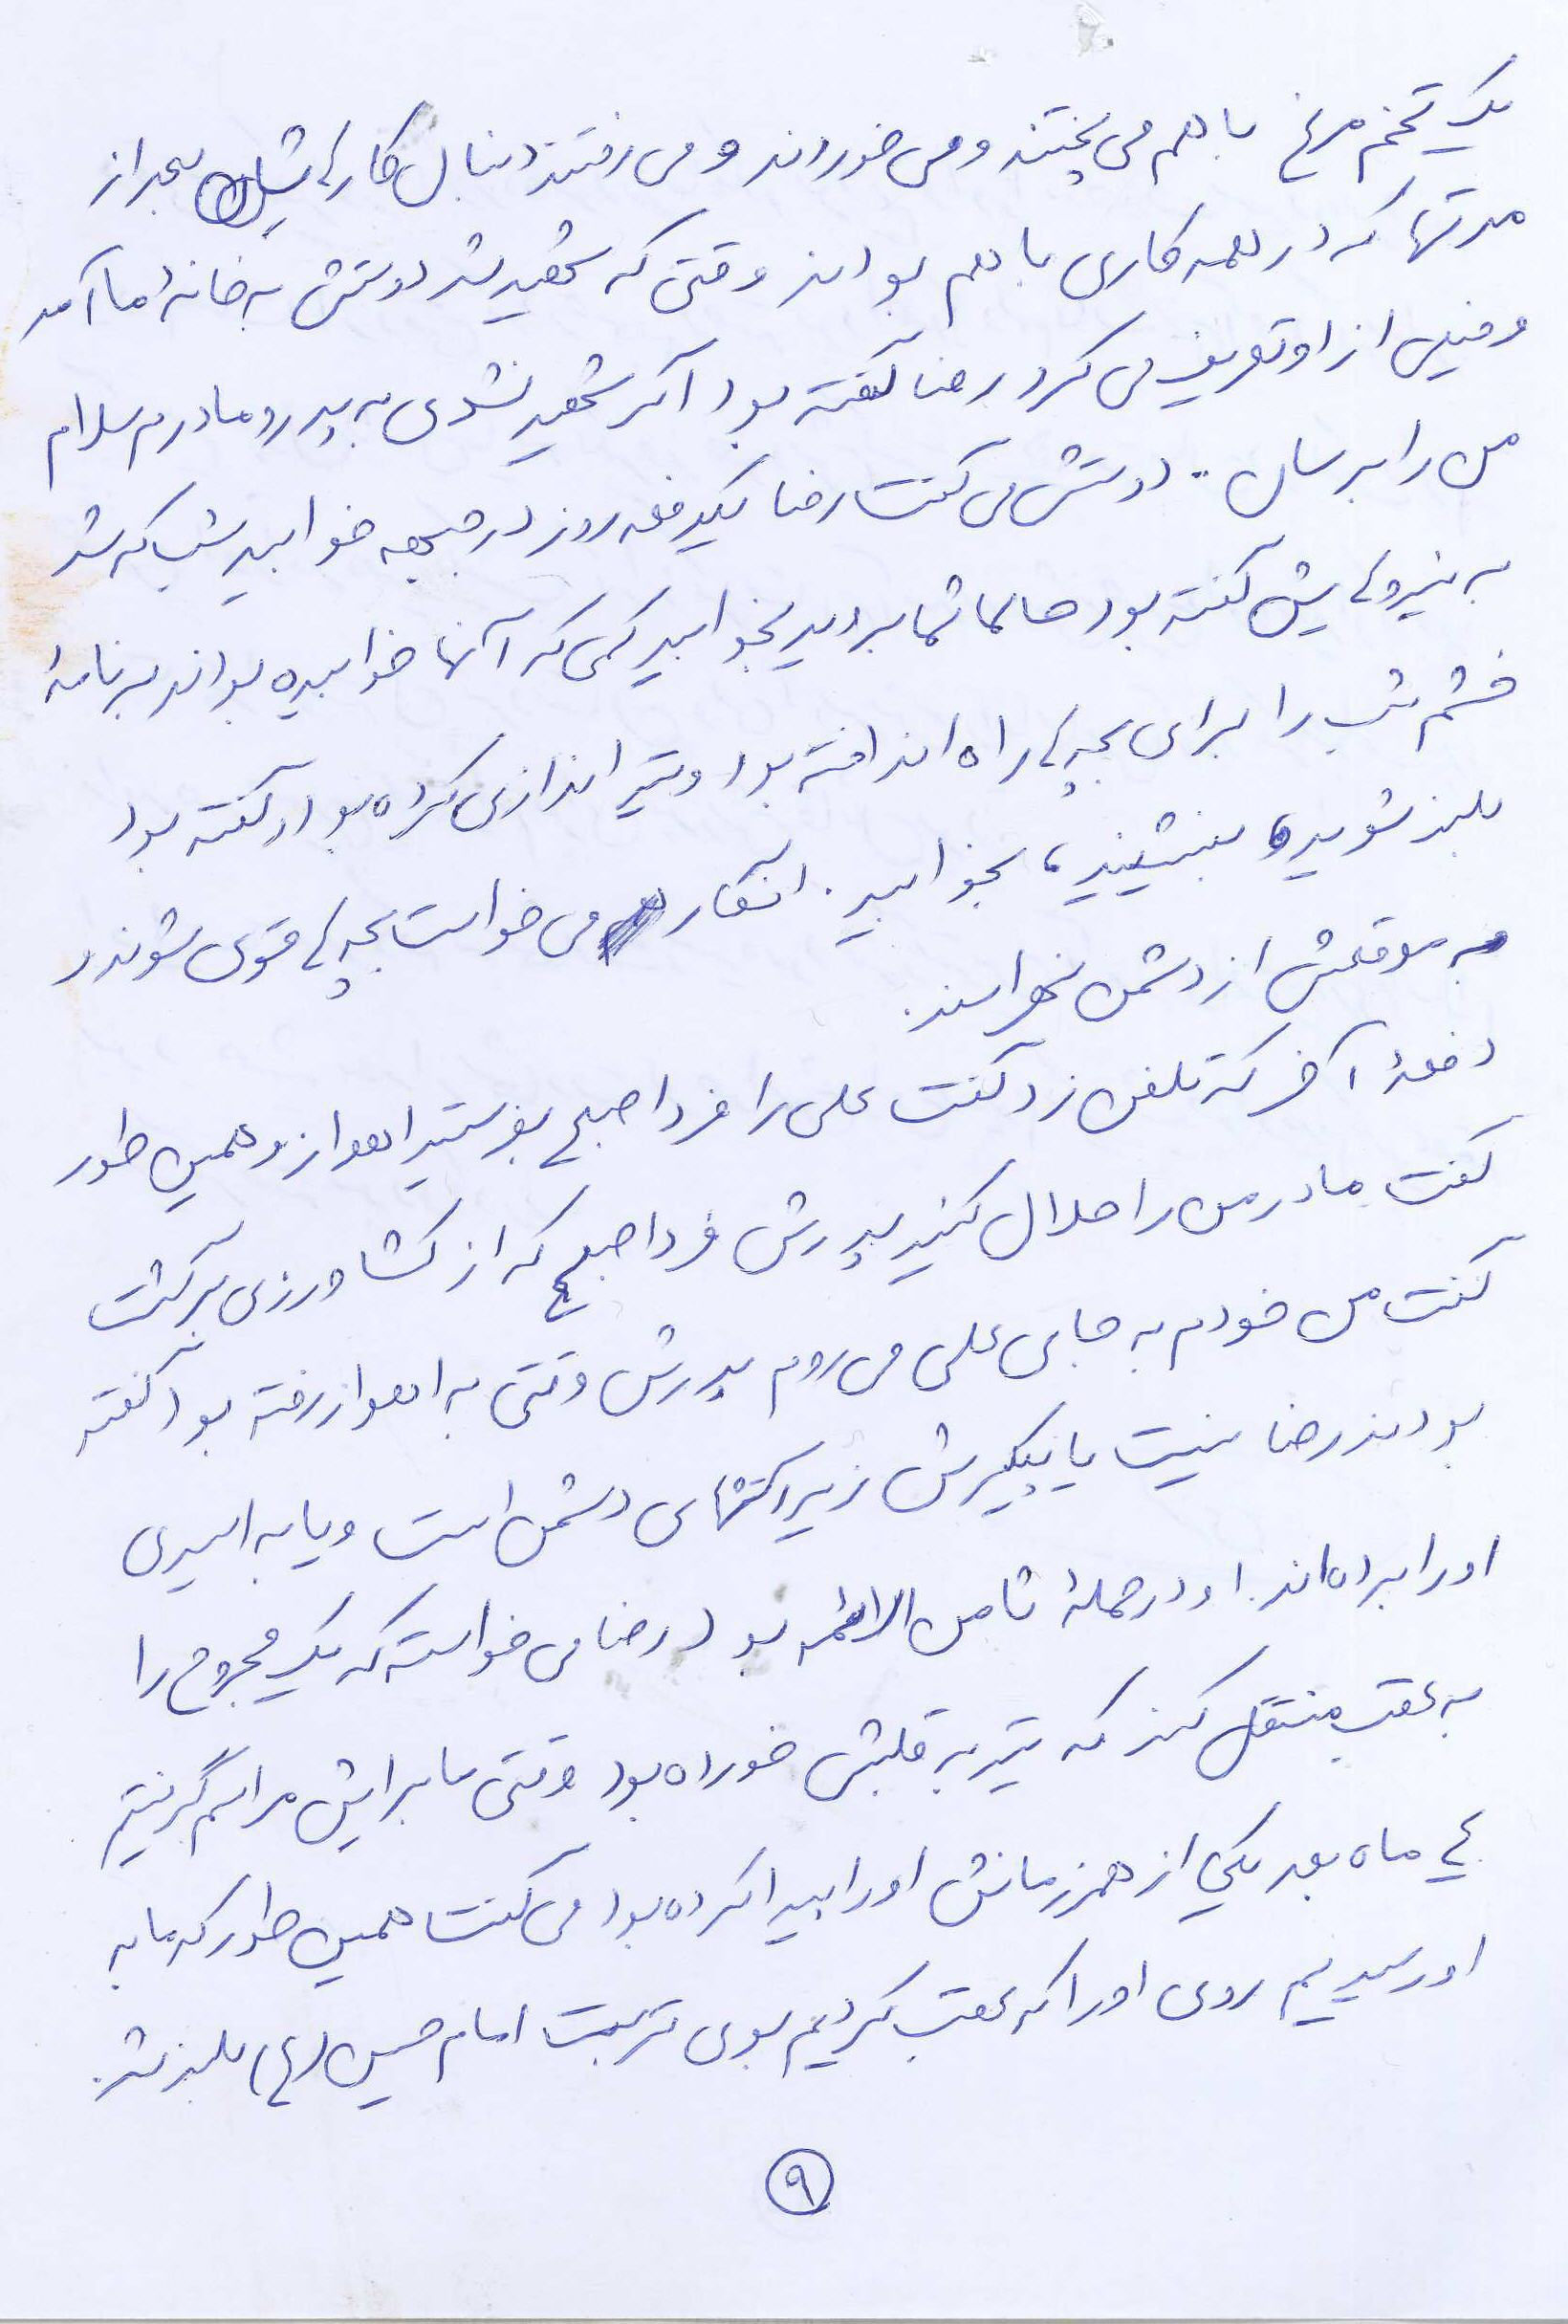 یک تخم مرغ با هم می پختند و می خوردند و می رفتند دنبال کارهایشان بعد از
مدتها که در همه کاری با هم بودند وقتی که شهید شد دوستش به خانه ما آمد
و خیلی از او تعریف می کرد رضا گفته بود اگر شهید نشدی به پدر و مادرم سلام
من را برسان .. دوستش می گفت رضا یکدفعه روز در جبهه خوابید شب که شد
به نیروهایش گفته بود حالا شما بروید بخوابید کمی که آنها خوابیده بودند برنامهٔ
خشم شب را برای بچه ها راه انداخته بود و تیر اندازی کرده بود و گفته بود
بلند شوید، بنشینید، بخوابید. انگار می خواست بچه ها قوی شوند و
به موقعش از دشمن نهراسند.
دفعهٔ آخر که تلفن زد گفت علی را فردا صبح بفرستید اهواز و همین طور
گفت مادر من را حلال کنید پدرش فردا صبح که از کشاورزی برگشت
گفت من خودم به جای علی می روم پدرش وقتی به اهواز رفته بود گفته
بودند رضا نیست یا پیکرش زیر آتشهای دشمن است و یا به اسیری
او را برده اند. او در حملهٔ ثامن الائمه بود رضا می خواسته که یک مجروح را
به عقب منتقل کند که تیر به قلبش خورده بود وقتی ما برایش مراسم گرفتیم
ماه بعد یکی از همرزمانش او را پیدا کرده بود می گفت همین طور که ما به
او رسیدیم روی او را که عقب کردیم بوی تربت امام حسین (ع) بلند شد.
۹